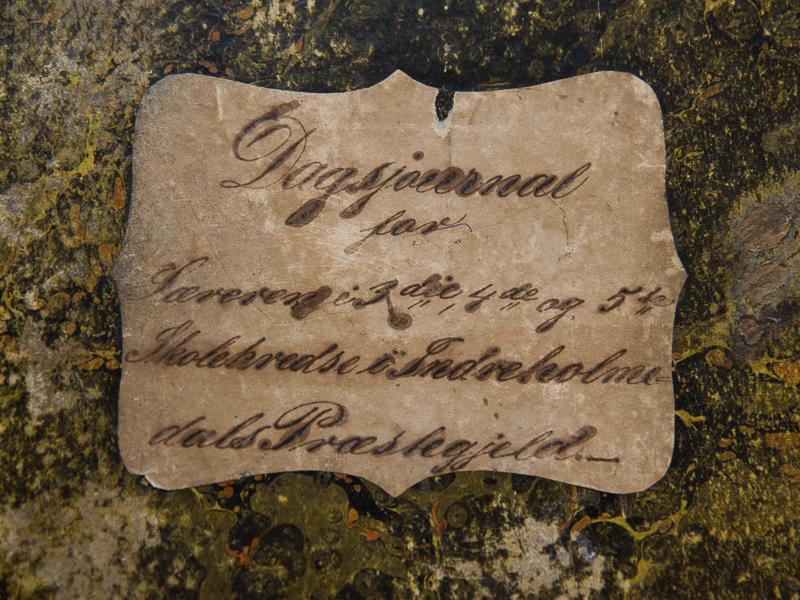 Dagsjournal
for
Læreren i 3die, 4de og 5te
Skolekredse i Indreholme-
dals Præstegjeld.